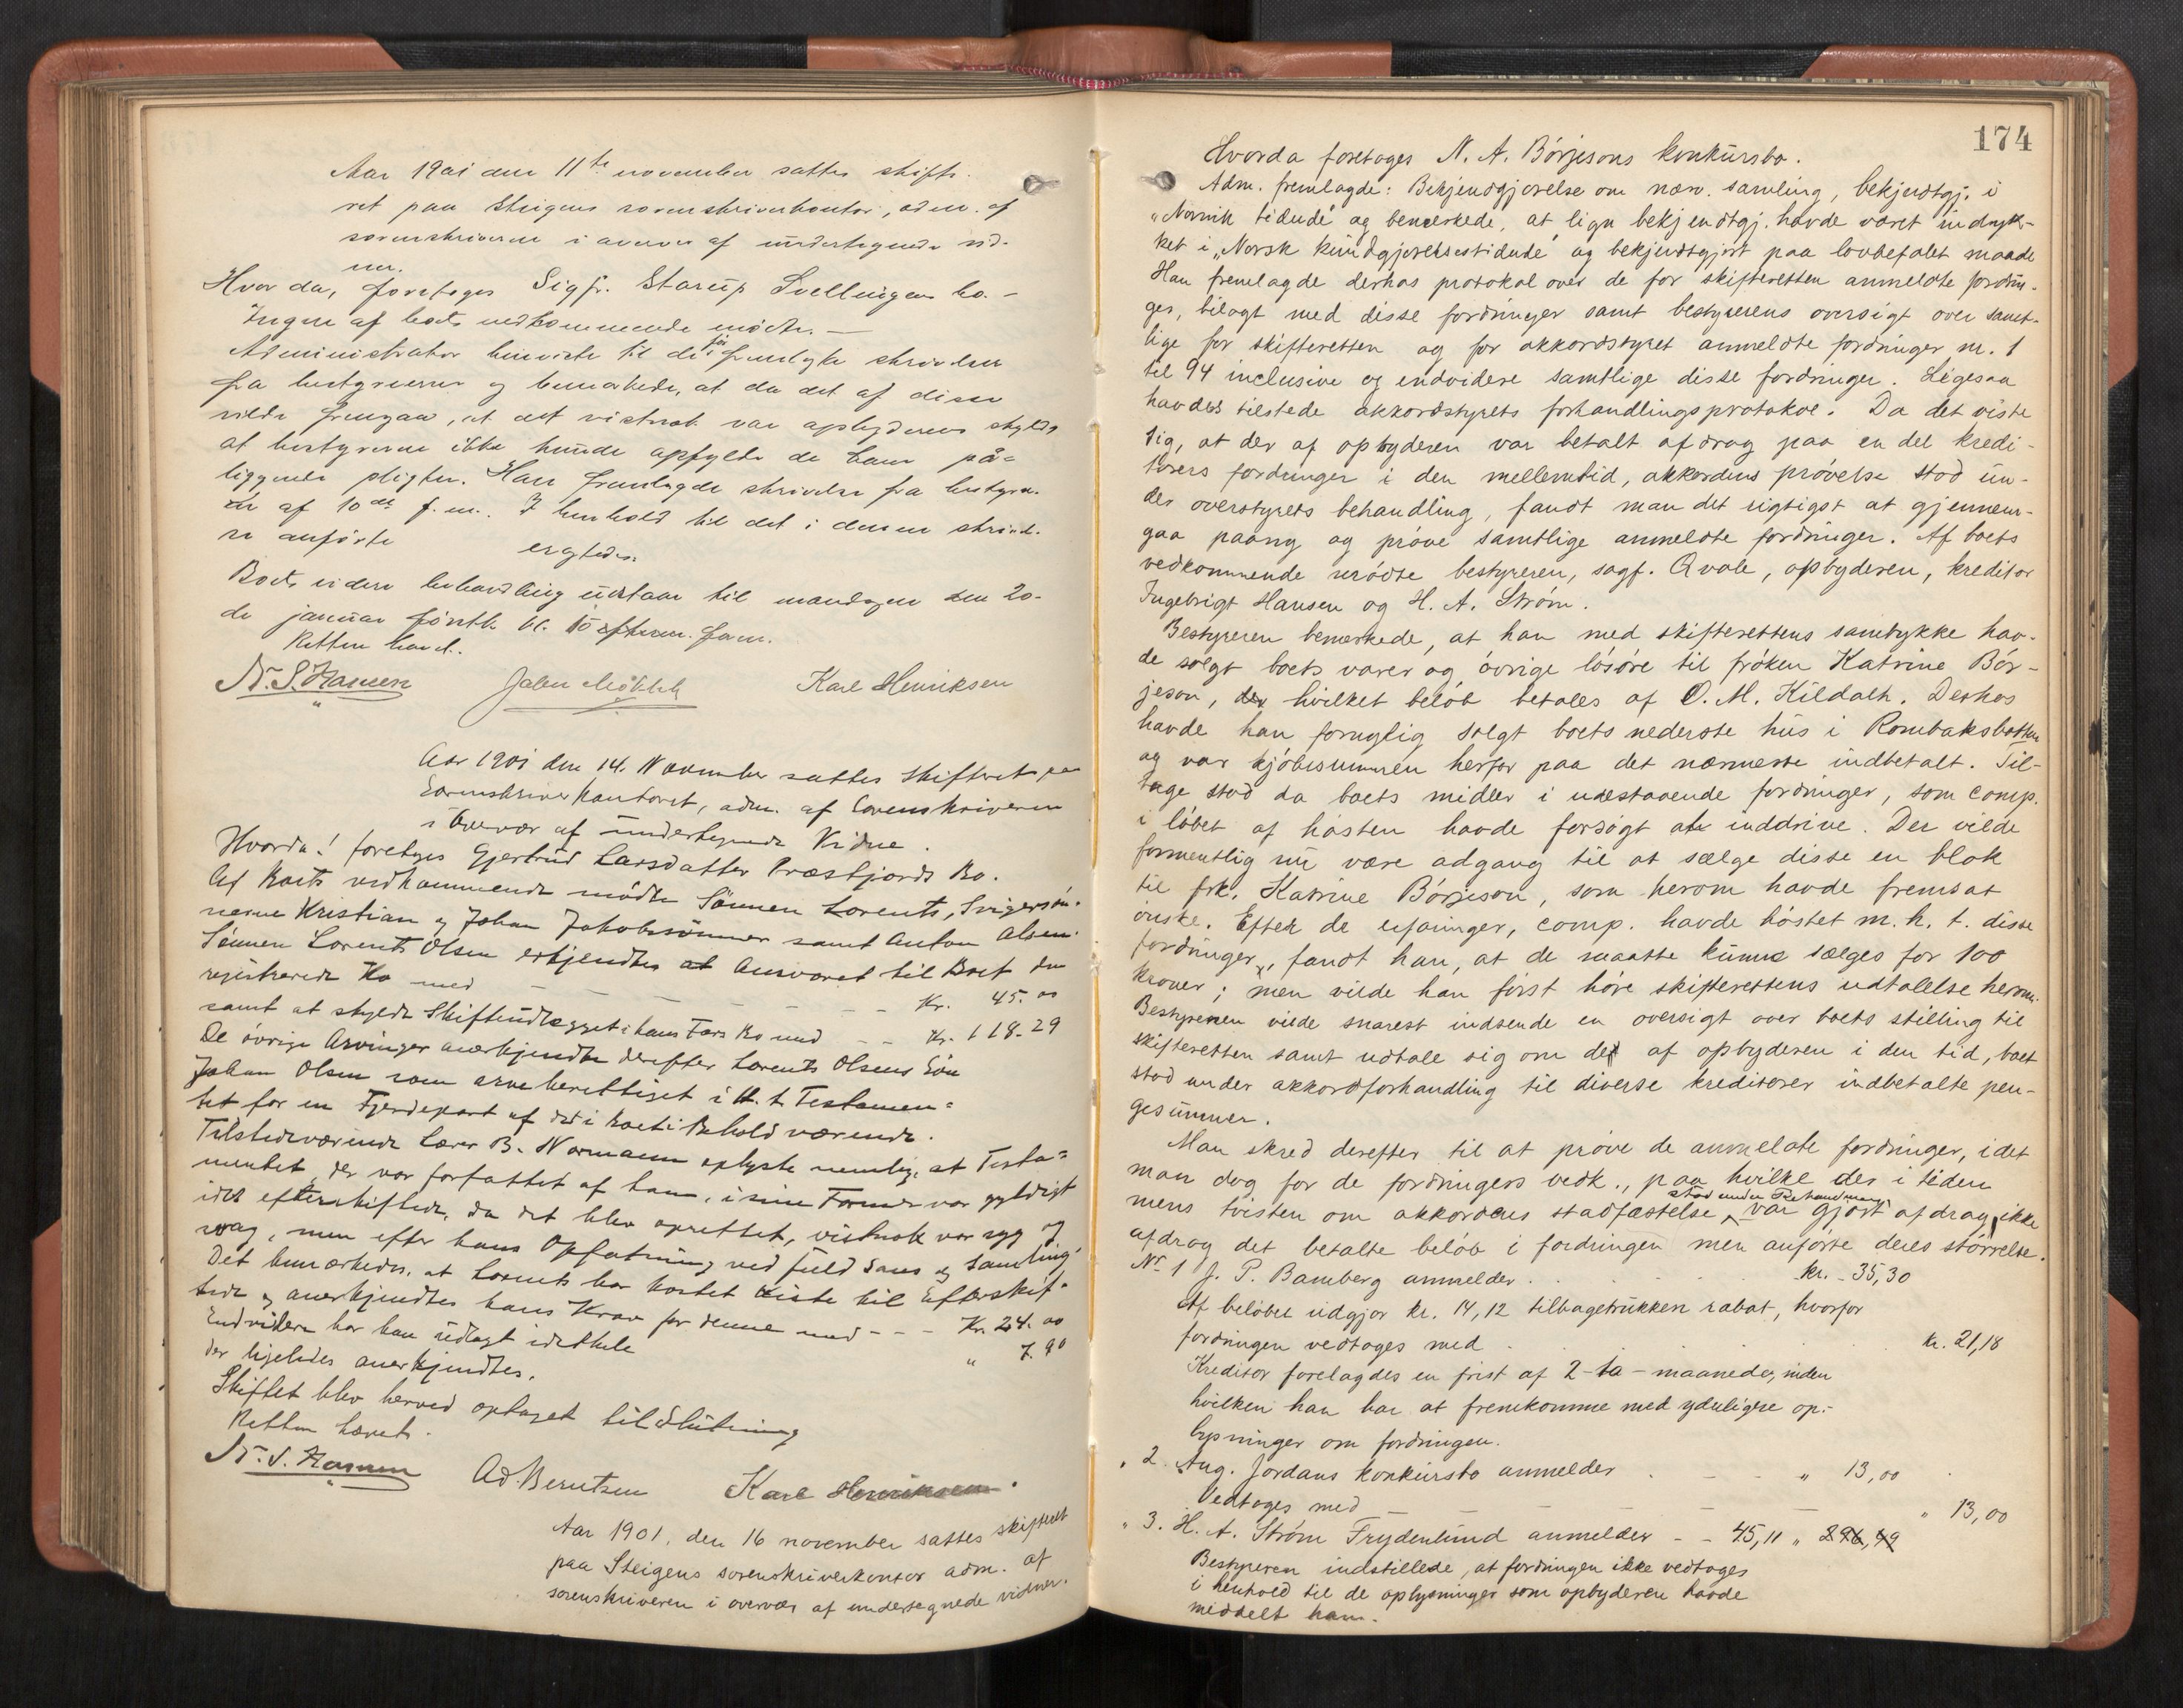 Aar 1901 den 11te november sattes skifte-
ret paa Steigens sorenskriverkontor, adm. af
sorenskriveren i overvær af undertegnede vid-
ner.
Hvor da, foretoges Sigfr. Starup Svellingens bo. –
Ingen af boets vedkommende mødte. —
Administrator henviste til de før fremlagte skrivelser
fra bestyreren og bemærkede, at da det af disse
vilde fremgaa, at det vistnok var opbyderens skyld,
at bestyreren ikke kunde opfylde de ham på-
liggende pligter. Han fremlagde skrivelse fra bestyre-
ren af 10de f. m. I henhold til det i denne skrivel-
se anførte
eragtedes:
Boets videre behandling udstaar til mandagen den 20-
de januar førstk. kl. 10 efterm. form.
Retten hævet.
N. S. Hansen Karl Henriksen
Aar 1901 den 14. November sattes Skifteret paa
Sorenskriverkontoret, adm. af Sorenskriveren
i Overvær af undertegnede Vidne.
Hvorda! foretoges Gjertrud Larsdatter Præstjords Bo.
Af Boets vedkommende mødte Sønnen Lorents, Svigersøn-
nerne Kristian og Johan Jakobsønner samt Anton Olsen.
Sønnen Lorents Olsen erkjendtes at Ansvaret til Boet den
registrerede Ko med – – – – – – Kr. 45.00
samt at skylde Skifteudlægget i hans Fars Bo med – – Kr. 118.29
De øvrige Arvinger anerkjendte derefter Lorents Olsens Søn
Johan Olsen som arveberettiget i H. t. Testamen-
tet for en Fjerdepart af det i Boet i Behold værende.
Tilstedeværende Lærer B. Normann oplyste nemlig, at Testa-
mentet, der var forfattet af ham, i sine Former var gyldigt
idet efterskiftede, da det blev oprettet, vistnok var syg og
svag, men efter hans Opfatning ved fuld Sans og Samling.
Det bemærkedes, at Lorents har kostet Kiste til Efterskif-
tede og anerkjendtes hans Krav for denne med – – – Kr. 24.00
Endvidere har han udlagt idethele " 7.90
der ligeledes anerkjendtes.
Skiftet blev herved optaget til Slutning
Retten hævet.
N. S. Hansen Ad. Berntsen Karl Henriksen.
Aar 1901, den 16 november sattes skifteret
paa Steigens sorenskriverkontor adm. af
sorenskriveren i overvær af undertegnede vidner.
174
Hvorda foretoges N. A. Börjesons konkursbo.
Adm. fremlagde: Bekjendtgjørelse om nærv. samling, bekjendtgj. i
"Narvik tidende" og bemerkede, at lign bekjendtgj. havde været indryk-
ket i "Norsk kundgjørelsestidende" og bekjendtgjort paa lovbefalet maade
Han fremlagde derhos protokol over de for skifteretten anmeldte fordrin-
ger, bilagt med disse fordringer samt bestyrerens oversigt over samt-
lige for skifteretten og for akkordstyret anmeldte fordringer nr. 1
til 94 inclusive og endvidere samtlige disse fordringer. Ligesaa
havdes tilstede akkordstyrets forhandlingsprotokol. Da det viste
sig, at der af opbyderen var betalt afdrag paa en del kredi-
torers fordringer i den mellemtid, akkordens prøvelse stod un-
der overstyrets behandling, fandt man det rigtigst at gjennem-
gaa paany og prøve samtlige anmeldte fordringer. Af boets
vedkommende mødte bestyreren, sagf. Qvale, opbyderen, kreditor
Ingebrigt Hansen og H. A. Strøm.
Bestyreren bemerkede, at han med skifterettens samtykke hav-
de solgt boets varer og øvrige løsøre til frøken Katrine Bör-
jeson, hvilket beløb betales af O. M. Kildalh. Derhos
havde han fornylig solgt boets nederste hus i Rombaksbotten
og var kjøbesummen herfor paa det nærmeste indbetalt. Til-
bage stod da boets midler i udestaaende fordringer, som comp.
i løbet af høsten havde forsøgt at inddrive. Der vilde
formentlig nu være adgang til at sælge disse en blok
til frk. Katrine Börjeson, som herom havde fremsat
ønske. Efter de erfaringer, comp. havde høstet m. h. t. disse
fordringer, fandt han, at de maatte kunne sælges for 100
kroner; men vilde han først høre skifterettens udtalelse herom.
Bestyreren vilde snarest indsende en oversigt over boets stilling til
skifteretten samt udtale sig om de af opbyderen i den tid, boet
stod under akkordforhandling til diverse kreditorer indbetalte pen-
gesummer.
Man skred derefter til at prøve de anmeldte fordringer, idet
man dog for de fordringers vedk., paa hvilke der i tiden
mens tvisten om akkordens stadfæstelse stod under Behandling, var gjort afdrag, ikke
afdrog det betalte beløb i fordringen men anførte deres størrelse.
Nr. 1 J. P. Bamberg anmelder . . . . kr. 35,30
Af beløbet udgjør kr. 14,12 tilbagetrukken rabat, hvorfor
fordringen vedtoges med . . . . kr. 21,18
Kreditor forelagdes en frist af 2 - to - maaneder, inden
hvilken han har at fremkomme med yderligere op-
lysninger om fordringen.
" 2. Aug. Jordans konkursbo anmelder . – – " 13,00
Vedtoges med – – – – – " 13,00
" 3. H. A. Strøm Frydenlund anmelder – – 45,11 " 896,49
Bestyreren indstillede, at fordringen ikke vedtoges
i henhold til de oplysninger som opbyderen havde
meddelt ham.